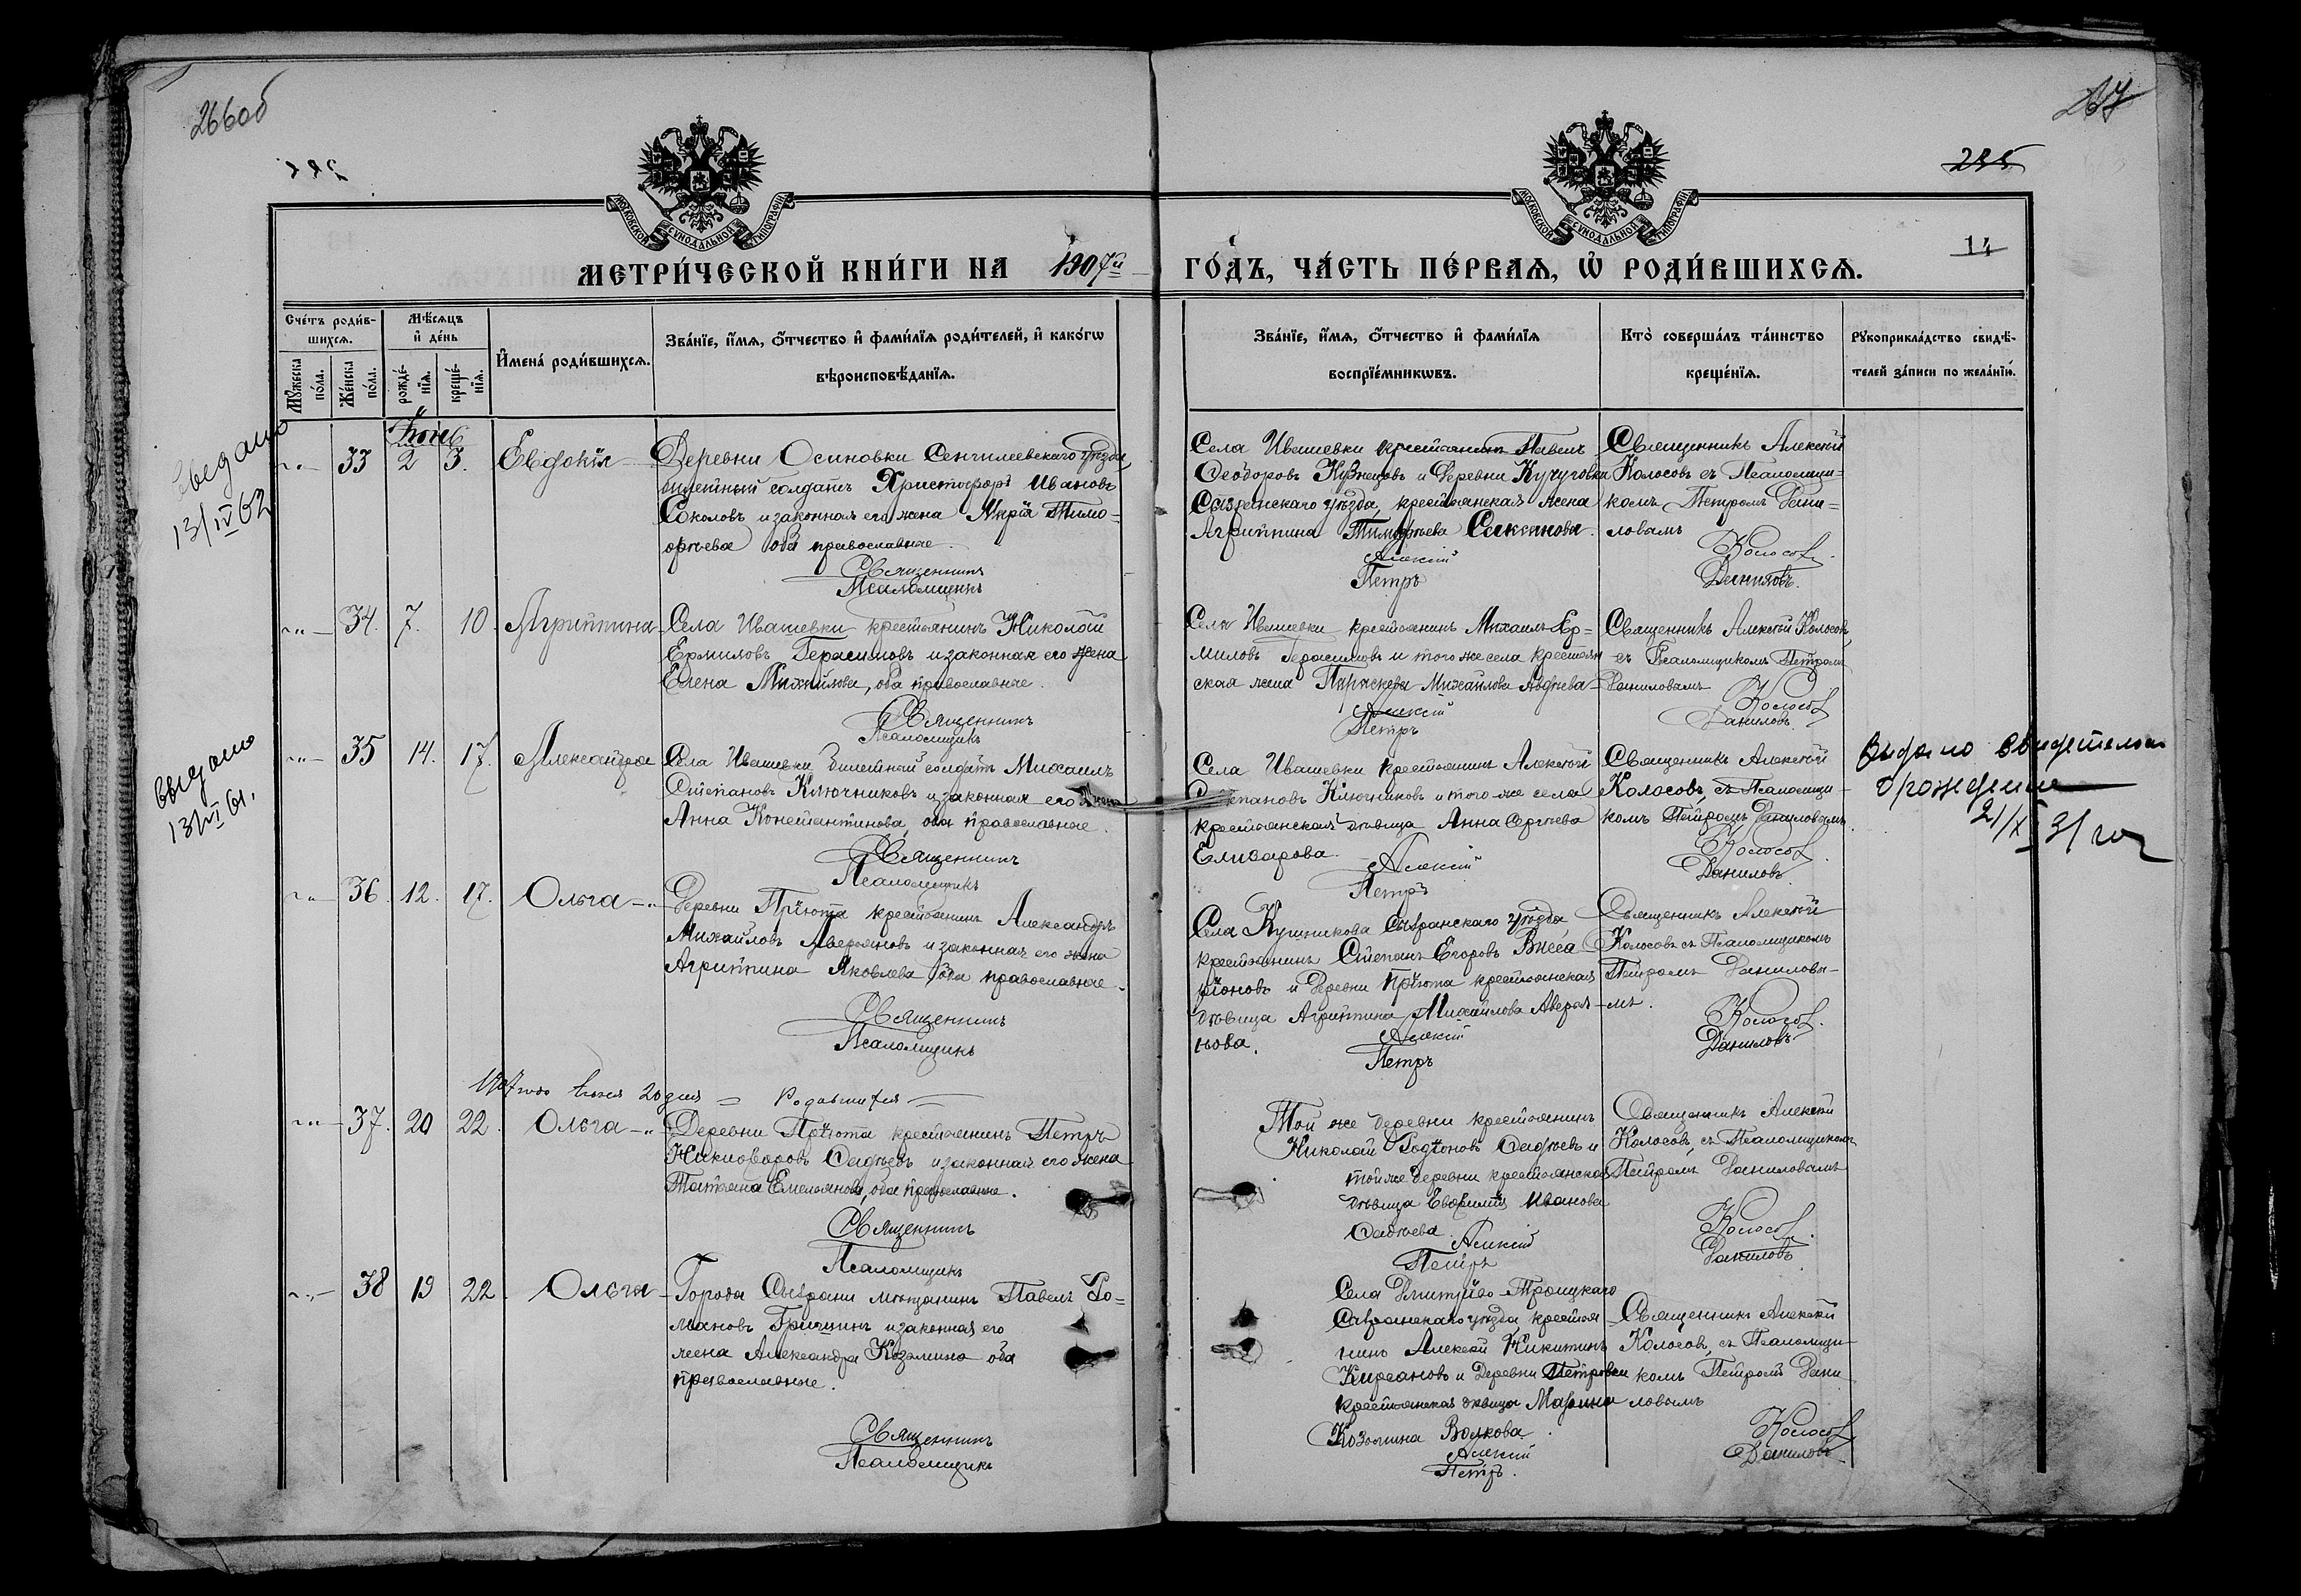 266об
267
235
14
МОСКОВСКОЙ СѴНОДАЛЬНОЙ ТИПОГРАФІИ
МОСКОВСКОЙ СѴНОДАЛЬНОЙ ТИПОГРАФІИ
МЕТРИ́ЧЕСКОЙ КНИ́ГИ НА 1907й ГО́ДЪ, ЧА́СТЬ ПЕ́РВАѦ, Ѡ҆ РОДИ́ВШИХСѦ.
Сче́тъ роди́в-
шихсѧ.
Мѹжеска по́ла.
Же́нска по́ла.
Мѣ́сѧцъ и҆ де́нь
рожде́-нїѧ.
креще́-нїѧ.
И҆мена̀ роди́вшихсѧ.
Зва́нїе, и҆́мѧ, ѻ҆́тчество и҆ фами́лїѧ роди́телей, и҆ како́гѡ
вѣроисповѣ́данїѧ.
Зва́нїе, и҆́мѧ, ѻ҆́тчество и҆ фами́лїѧ
воспрїе́мникѡвъ.
Кто̀ соверша́лъ та́инство
креще́нїѧ.
Рѹкоприкла́дство свидѣ́-
телей за́писи по жела́нїю.
Іюнь
выдано
13/IV 62
33 2 3. Евдокія
Деревни Осиновки Сенгилеевскаго уѣзда,
билетный солдатъ Христофоръ Ивановъ
Соколовъ и законная его жена Марія Тимо-
ѳѣева оба православные.
Священникъ
Псаломщикъ
Села Ивашевки крестьянинъ Павелъ
Ѳеодоровъ Кузнецовъ и деревни Кучуговки
Сызранскаго уѣзда, крестьянская жена
Агриппина Тимоѳѣева
Алексій
Петръ
Священникъ Алексѣй
Колосовъ съ Псаломщи-
комъ Петромъ Дани-
ловымъ
Колосовъ
Даниловъ.
34. 7. 10. Агриппина
Села Ивашевки крестьянинъ Николай
Ермиловъ Герасимовъ и законная его жена
Елена Михайлова, оба православные.
Священникъ
Псаломщикъ
Села Ивашевки крестьянинъ Михаилъ Ер-
миловъ Герасимовъ и того же села крестьян
ская жена Параскева Михайлова Авдѣева
Алексій
Петръ
Священникъ Алексѣй Колосовъ,
съ Псаломщикомъ Петромъ
Даниловымъ
Колосовъ
Даниловъ.
выдано
13/VI 61.
35 14. 17. Александра
Села Ивашевки билетный солдатъ Михаилъ
Степановъ Ключниковъ и законная его жена
Анна Константинова, оба православные.
Священникъ
Псаломщикъ
Села Ивашевки крестьянинъ Алексѣй
Степановъ Ключниковъ и того-же села
крестьянская дѣвица Анна Сергѣева
Елизарова.
Алексій
Петръ
Священникъ Алексѣй
Колосовъ, съ Псаломщи-
комъ Петромъ Даниловымъ.
Колосовъ
Даниловъ
Выдано свидетельст
о рождении
21/X 31 год
36. 12. 17. Ольга
Деревни Пріюта крестьянинъ Александръ
Михайловъ Аверьяновъ и законная его жена
Агриппина Яковлева оба православные.
Священникъ
Псаломщикъ
Села Кушникова Сызранскаго уѣзда
крестьянинъ Степанъ Егоровъ Висса-
ріоновъ и деревни Пріюта крестьянская
дѣвица Агриппина Михайлова Аверья-
нова.
Алексій
Петръ
Священникъ Алексѣй
Колосовъ съ Псаломщикомъ
Петромъ Даниловы-
мъ.
Колосовъ.
Даниловъ
1907 года Июня 20 дня = Родившиеся
37. 20 22. Ольга
Деревни Пріюта крестьянинъ Петръ
Никифоровъ и законная его жена
Татьяна Емельянова, оба православные.
Священникъ
Псаломщикъ
Той же деревни крестьянинъ
Николай Родіоновъ и
той же деревни крестьянская
дѣвица Евфимія Иванова
Алексій
Петръ
Священникъ Алексѣй
Колосовъ, съ Псаломщикомъ
Петромъ Даниловымъ
Колосовъ.
Даниловъ.
38 19 22. Ольга
Города Сызрани мѣщанинъ Павелъ Ро-
мановъ Гришинъ и законная его
жена Александра Козьмина оба
православные.
Священникъ
Псаломщикъ
Села Дмитріево-Троицкаго
Сызранскаго уѣзда крестья-
нинъ Алексѣй Никитинъ
Кирсановъ и деревни Петровки
крестьянская дѣвица Марина
Козьмина Волкова.
Алексій
Петръ.
Священникъ Алексѣй
Колосовъ, съ Псаломщи-
комъ Петромъ Дани-
ловымъ
Колосовъ
Даниловъ